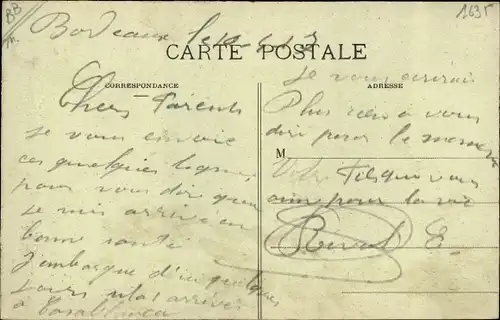 BB
1635
Bordeaux le 10-6-13
CARTE POSTALE
CORRESPONDANCE
ADRESSE
M
Chers Parents
Je vous envoie
ces quelques lignes
pour vous dire que
je suis arrivé en
bonne santé
J'embarque d'ici quelques
jours
à Casablanca
Je vous
Plus rien à vous
dire pour le moment
Votre Fils qui vous
aime pour la vie
E